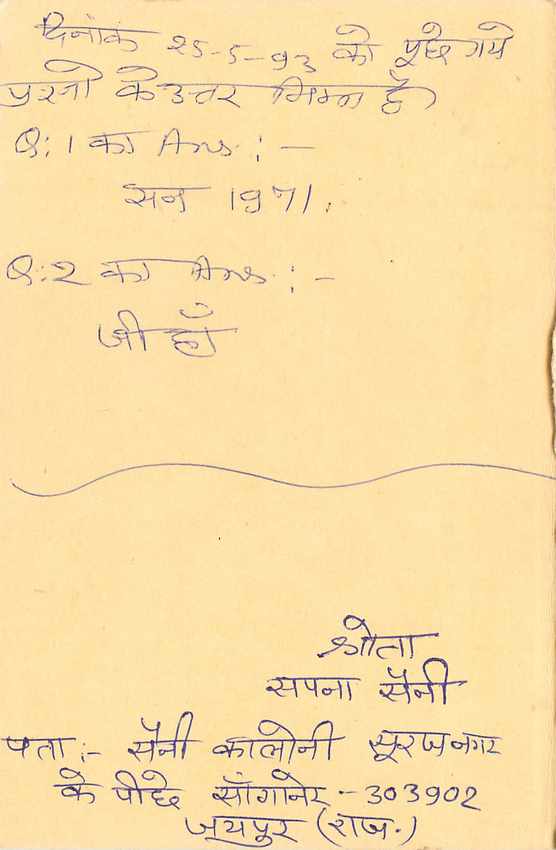 दिनांक 25-5-93 को पूछे गये
प्रश्नो के उत्तर निम्न है
Q:1 का Ans :-
सन 1971.
Q:2 का Ans :-
जी हाँ
श्रोता
सपना सैनी
पता :- सैनी कालोनी सूरजनगर
के पीछे साँगानेर - 303902
जयपुर (राज.)